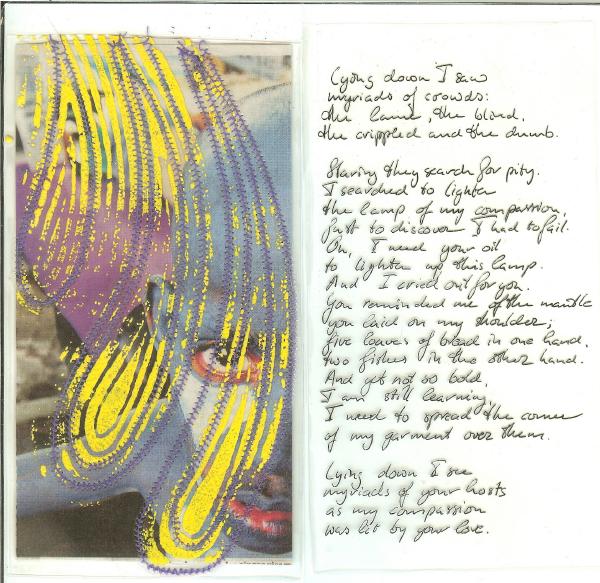 Lying down I saw
myriads of crowds:
the lame, the blind,
the crippled and the dumb.
Staring they search for pity.
I searched to lighten
the lamp of my compassion,
just to discover I had to fail.
Oh, I need your oil
to lighten up this lamp.
And I cried out for you.
You reminded me of the mantle
you laid on my shoulder;
five loaves of bread in one hand,
two fishes in the other hand.
And yet not so bold,
I am still learning,
I need to spread the corner
of my garment over them.
Lying down I see
myriads of your hosts
as my compassion
was lit by your love.